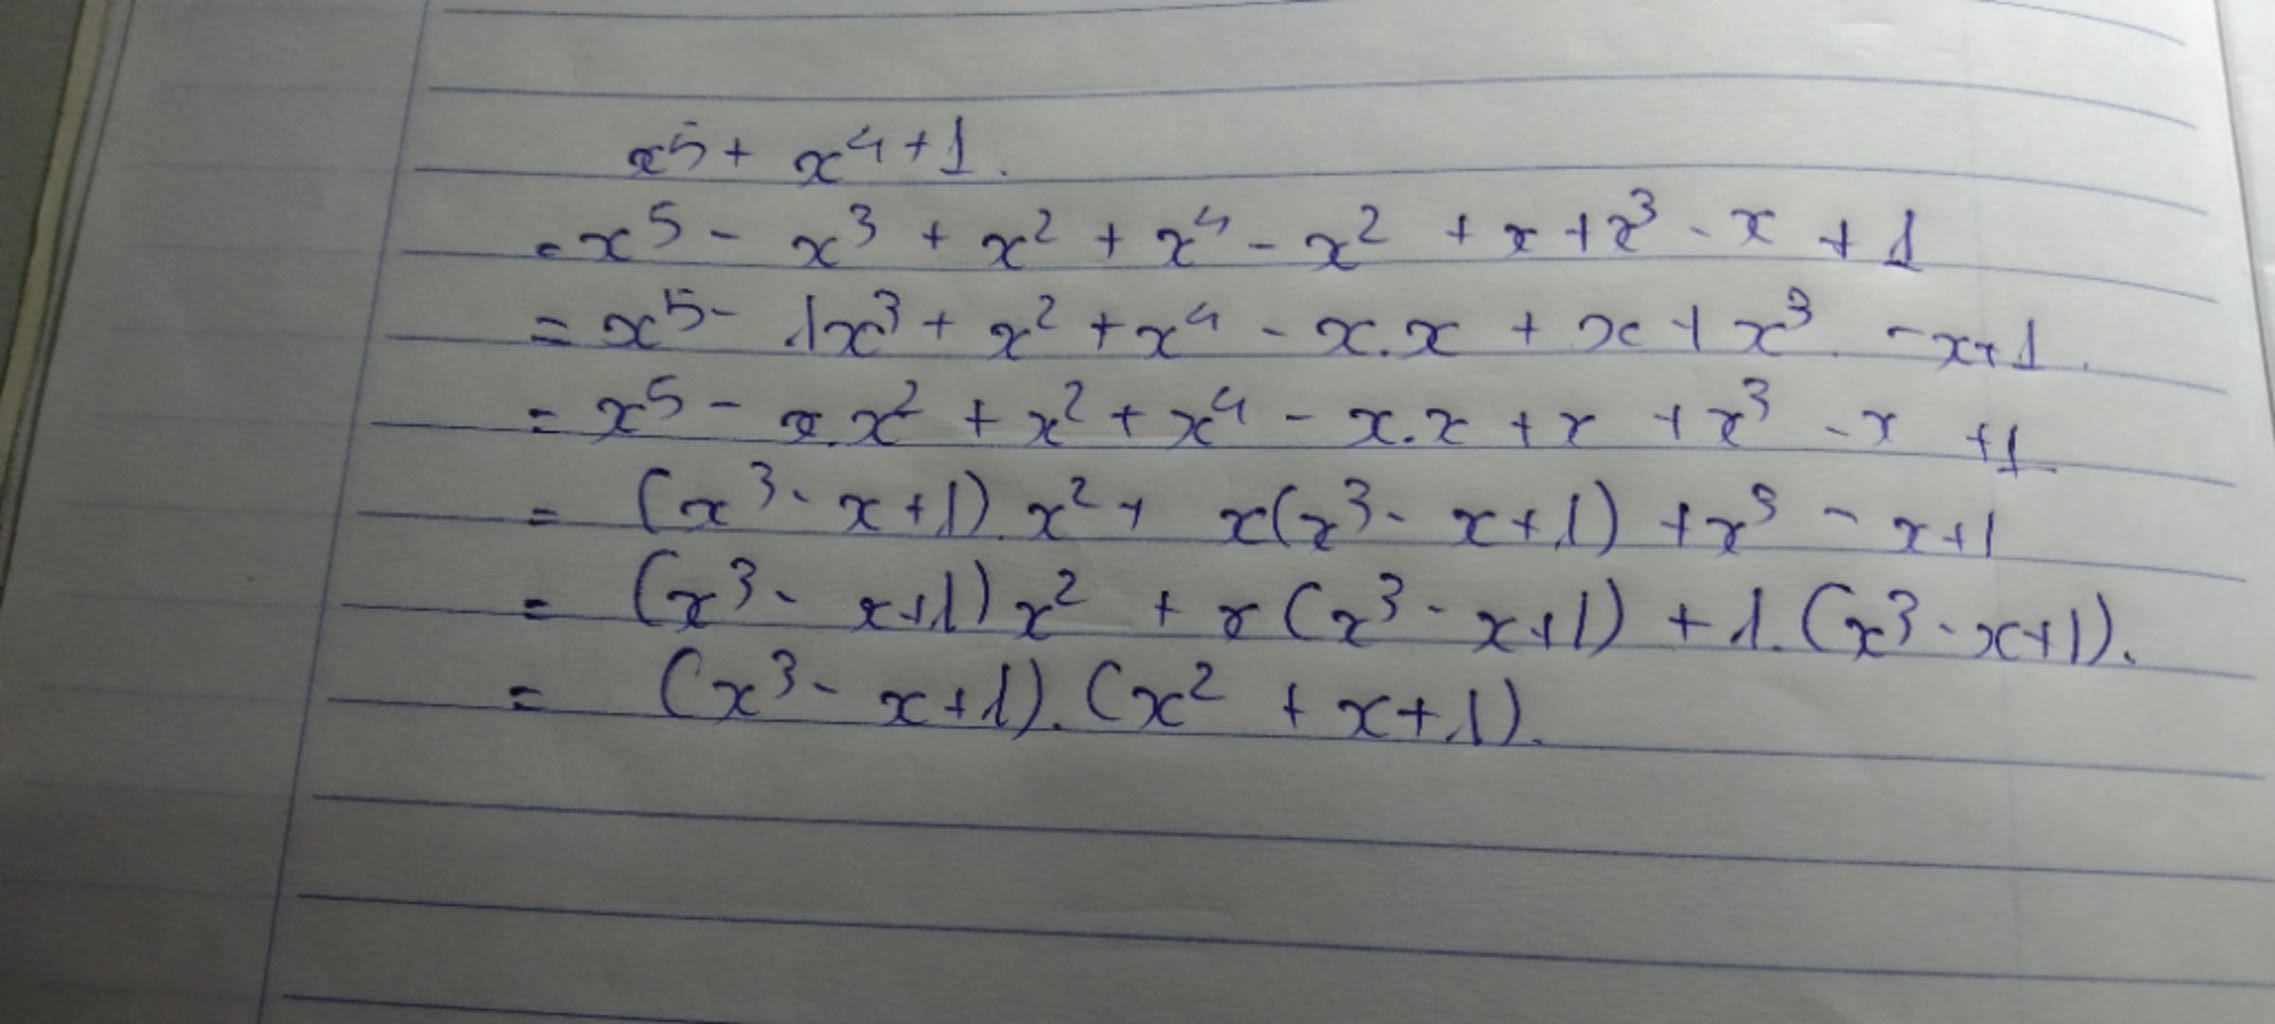 x⁵ + x⁴ + 1.
= x⁵ - x³ + x² + x⁴ - x² + x + x³ - x + 1
= x⁵ - 1x³ + x² + x⁴ - x.x + x + x³ - x + 1.
= x⁵ - x.x² + x² + x⁴ - x.x + x + x³ - x + 1
= (x³ - x + 1).x² + x(x³ - x + 1) + x³ - x + 1
= (x³ - x + 1) x² + x(x³ - x + 1) + 1.(x³ - x + 1).
= (x³ - x + 1).(x² + x + 1).